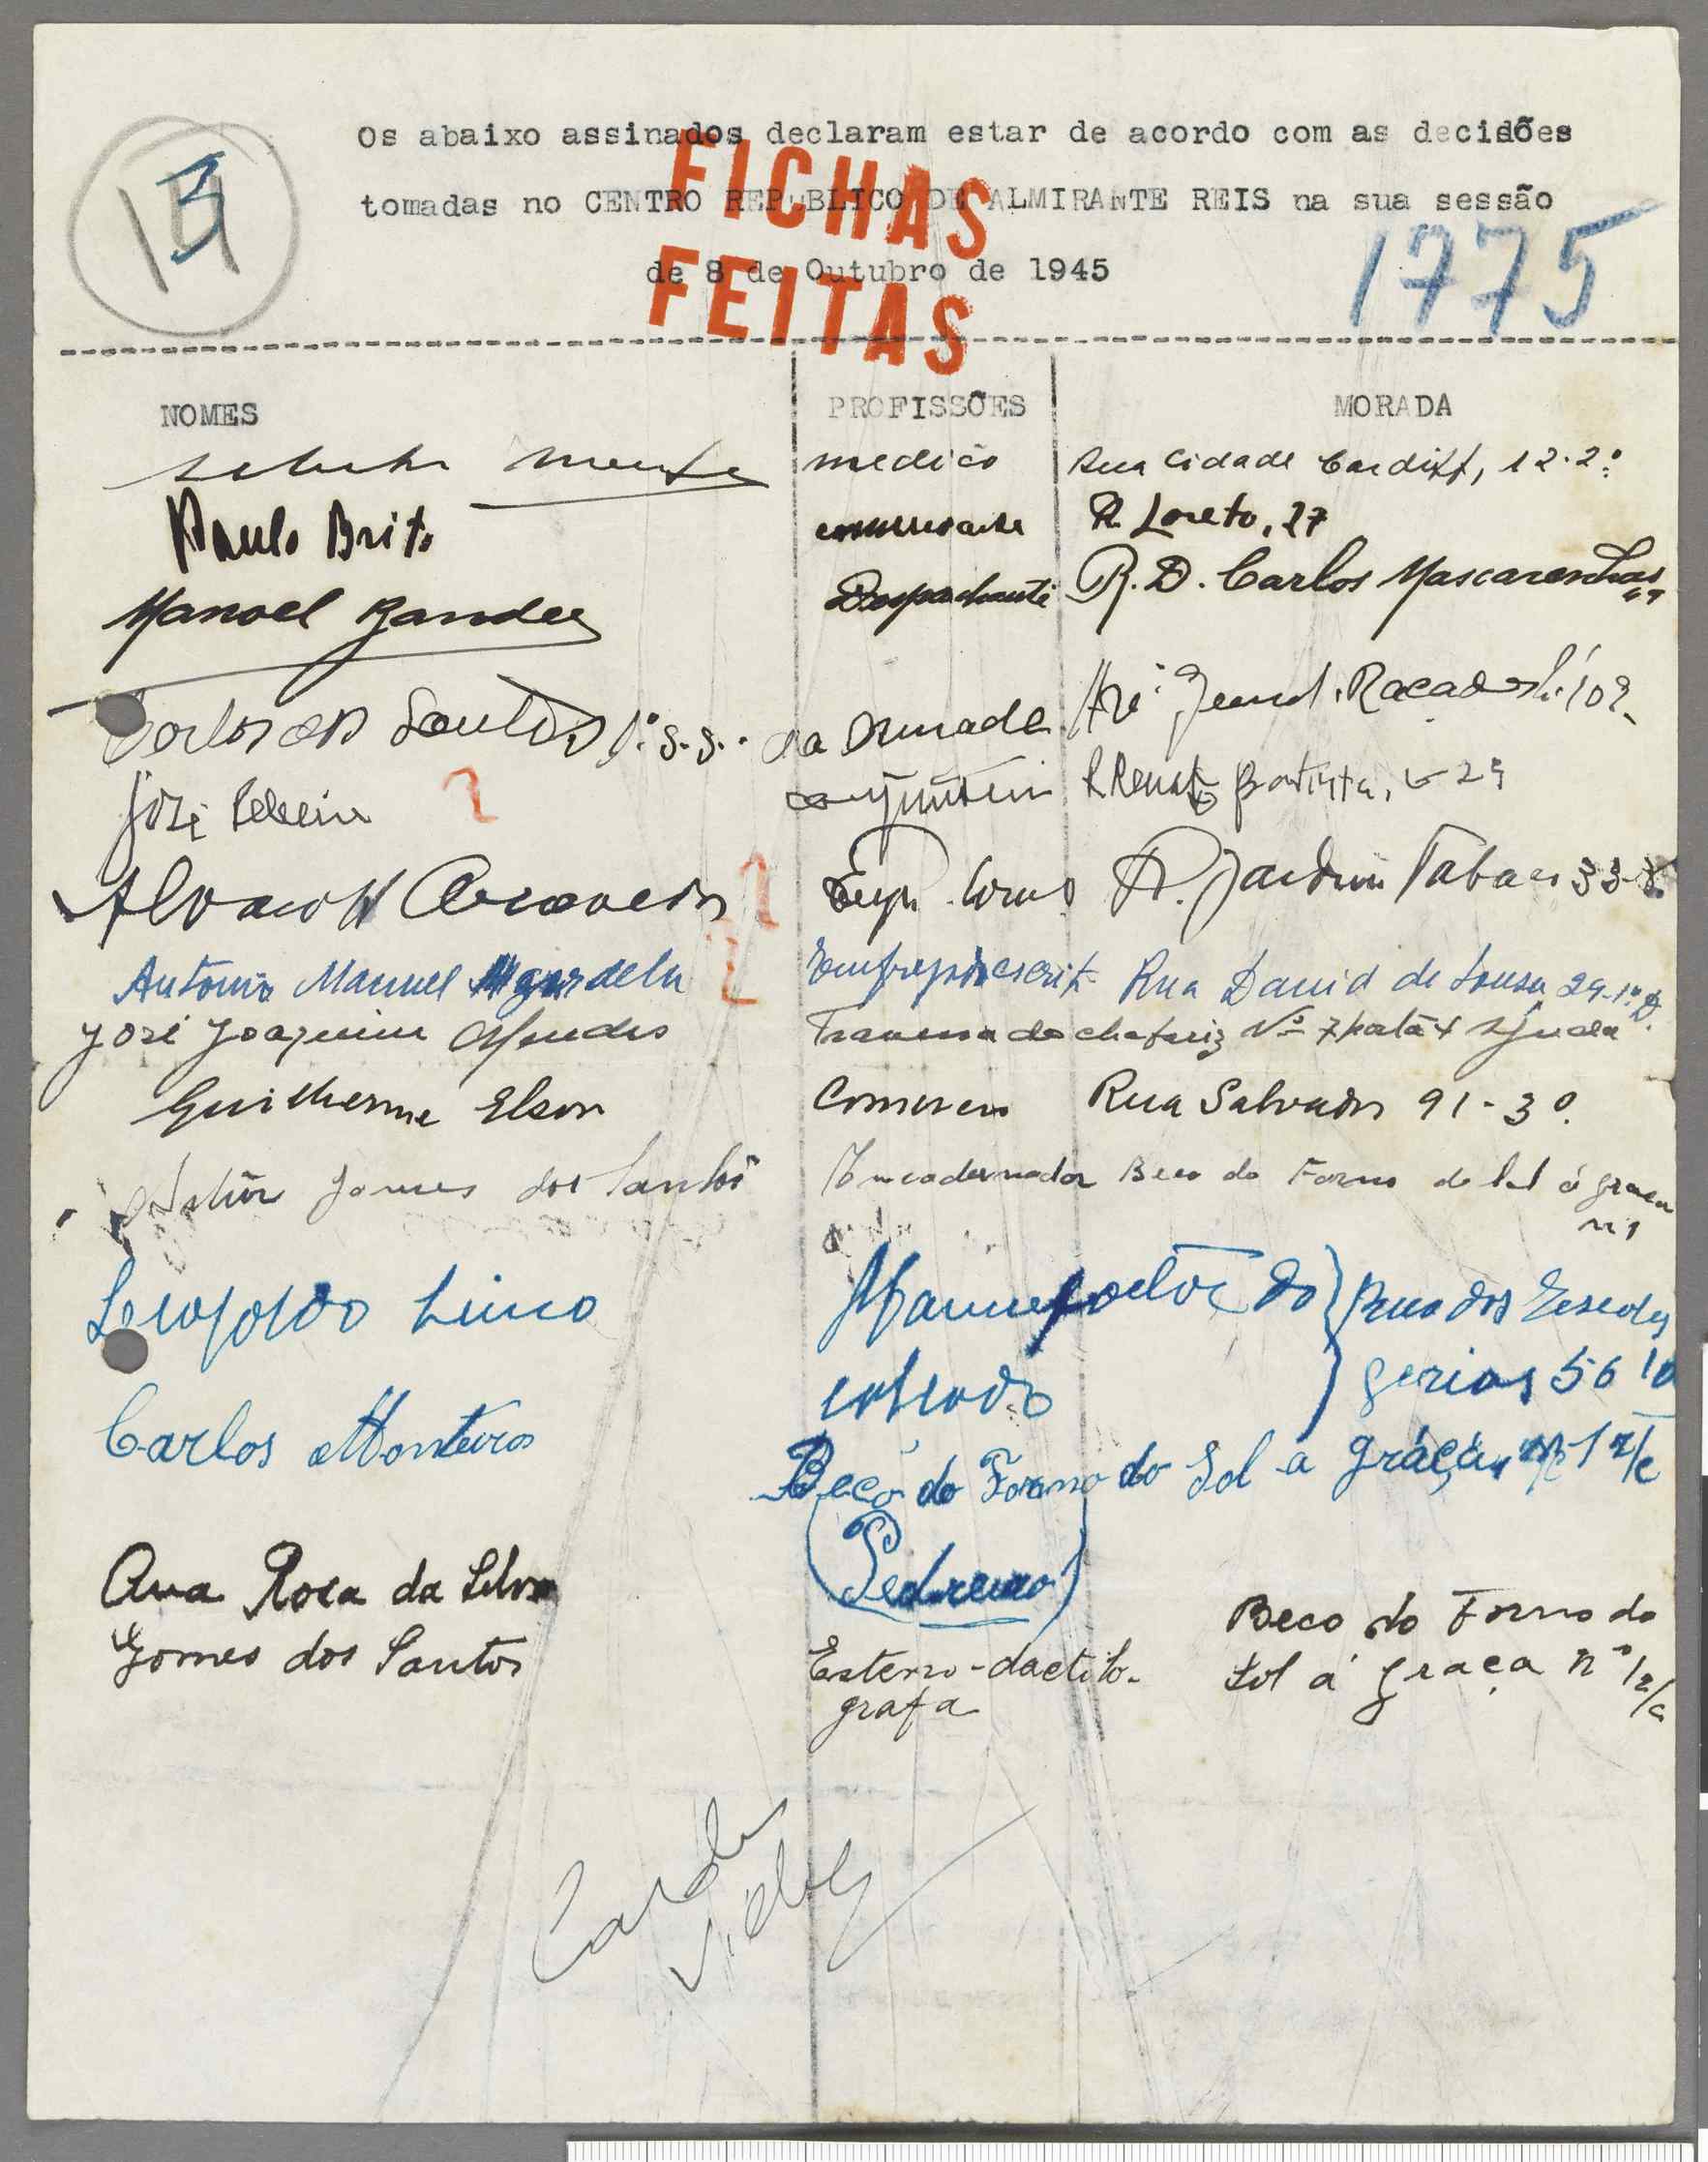 Os abaixo assinados declaram estar de acordo com as decisões
tomadas no CENTRO REPUBLICO DE ALMIRANTE REIS na sua sessão
de 8 de Outubro de 1945
FICHAS
FEITAS
13
1775
NOMES PROFISSÕES MORADA
medico Rua Cidade Cardiff, 12-2º
Paulo Brito comerciante R. Loreto, 27
Manoel Despachante R. D. Carlos Mascarenhas
Carlos dos Santos 1º s.s. da Armada
José
Alvaro Emp. Com. R. Jardim Tabaco 33
Antonio Manuel Empregº escritº Rua David de Sousa 29-1º D.
José Joaquim Mendes Travessa do chafariz Nº 7 porta 4 Ajuda
Guilherme Elson Comercio Rua Salvador 91-3º
Gomes dos Santos Encadernador Beco do Forno do Sol á graça
nº 1
Leopoldo Lino Manufactor do Rua dos Escolas
calçado Gerais 56
Carlos Monteiro Beco do Forno do Sol a graça nº 1 r/c
(Pedreiro)
Ana Rosa da Silva Beco do Forno do
Gomes dos Santos Esteno-dactiló- Sol á graça nº 1 r/c
grafa